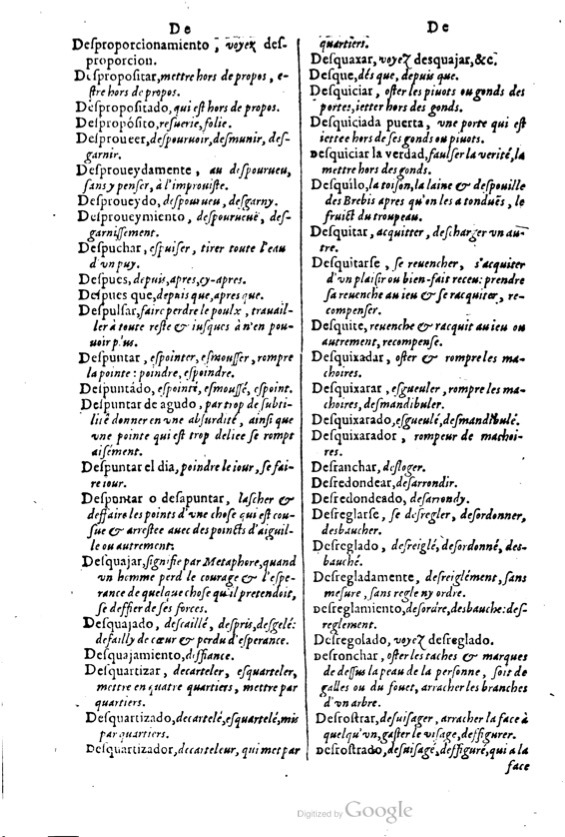 De
Desproporcionamiento, voyez des-
proporcion.
Despropositar, mettre hors de propos, e-
stre hors de propos.
Despropositado, qui est hors de propos.
Despropósito, resuerie, folie.
Desproueer, despouruoir, desmunir, des-
garnir.
Desproueydamente, au despourueu,
sans y penser, à l'improuiste.
Desproueydo, despourueu, desgarny.
Desproueymiento, despourueuë, des-
garnissement.
Despuchar, espuiser, tirer toute l'eau
d'vn puy.
Despues, depuis, apres, cy-apres.
Despues que, depuis que, apres que.
Despulsar, faire perdre le poulx, trauail-
ler à toute reste & iusques à n'en pou-
uoir plus.
Despuntar, espointer, esmousser, rompre
la pointe: poindre, espoindre.
Despuntádo, espointé, esmoussé, espoint.
Despuntar de agudo, par trop de subti-
lité donner en vne absurdité, ainsi que
vne pointe qui est trop deliee se rompt
aisément.
Despuntar el dia, poindre le iour, se fai-
re iour.
Despuntar o desapuntar, lascher &
deffaire les points d'vne chose qui est cou-
sue & arrestee auec des poincts d'aiguil-
le ou autrement.
Desquajar, signifie par Metaphore, quand
vn homme perd le courage & l'espe-
rance de quelque chose qu'il pretendoit,
se deffier de ses forces.
Desquajado, descaillé, despris, desgelé:
defailly de cœur & perdu d'esperance.
Desquajamiento, diffiance.
Desquartizar, decarteler, esquarteler,
mettre en quatre quartiers, mettre par
quartiers.
Desquartizado, decartelé, esquartelé, mis
par quartiers.
Desquartizador, decarteleur, qui met par
De
quartiers.
Desquaxar, voyez desquajar, &c.
Desque, dés que, depuis que.
Desquiciar, oster les piuots ou gonds des
portes, ietter hors des gonds.
Desquiciada puerta, vne porte qui est
iettee hors de ses gonds ou piuots.
Desquiciar la verdad, faulser la verité, la
mettre hors des gonds.
Desquilo, la toison, la laine & despouille
des Brebis apres qu'on les a tonduës, le
fruict du troupeau.
Desquitar, acquitter, descharger vn au-
tre.
Desquitarse, se reuencher, s'acquiter
d'vn plaisir ou bien-fait receu: prendre
sa reuenche au ieu & se racquiter, re-
compenser.
Desquite, reuenche & racquit au ieu ou
autrement, recompense.
Desquixadar, oster & rompre les ma-
choires.
Desquixarar, esgueuler, rompre les ma-
choires, desmandibuler.
Desquixarado, esgueulé, desmandibulé.
Desquixarador, rompeur de machoi-
res.
Desranchar, desloger.
Desredondear, desarrondir.
Desredondeado, desarrondy.
Desreglarse, se desregler, desordonner,
desbaucher.
Desreglado, desreiglé, desordonné, des-
bauché.
Desregladamente, desreiglément, sans
mesure, sans regle ny ordre.
Desreglamiento, desordre, desbauche: des-
reglement.
Desregolado, voyez desreglado.
Desronchar, oster les taches & marques
de dessus la peau de la personne, soit de
galles ou du fouet, arracher les branches
d'vn arbre.
Desrostrar, desuisager, arracher la face à
quelqu'vn, gaster le visage, deffigurer.
Desrostrado, desuisagé, deffiguré, qui a la
face
Digitized by Google